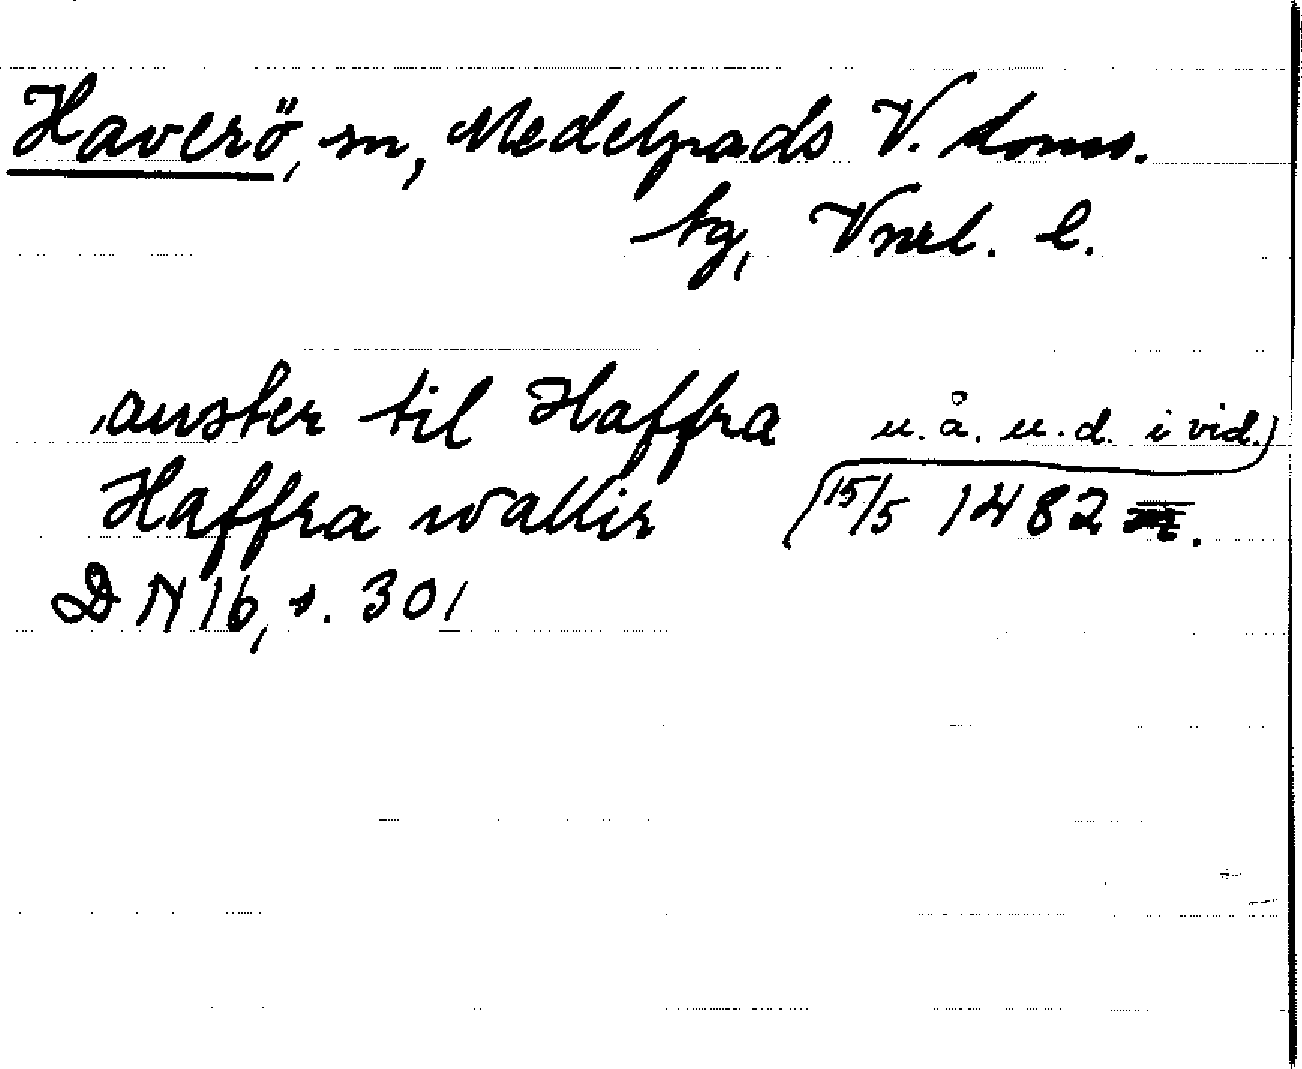 Haverö, sn, Medelpads V. doms.
tg, Vnrl. l.
auster til Haffra u. å. u. d. i vid.)
Haffra wallir (15/5 1482
DN 16, s. 301